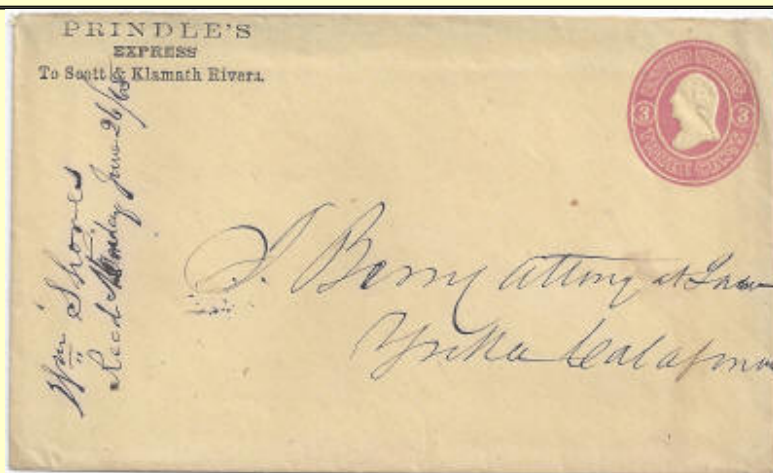 PRINDLE'S
EXPRESS
To Scott & Klamath Rivers.
UNITED STATES
3 3
THREE CENTS
Wm Shores
Recd Monday June 26/65
J. Berry Attony at Law
Yreka Calafornia